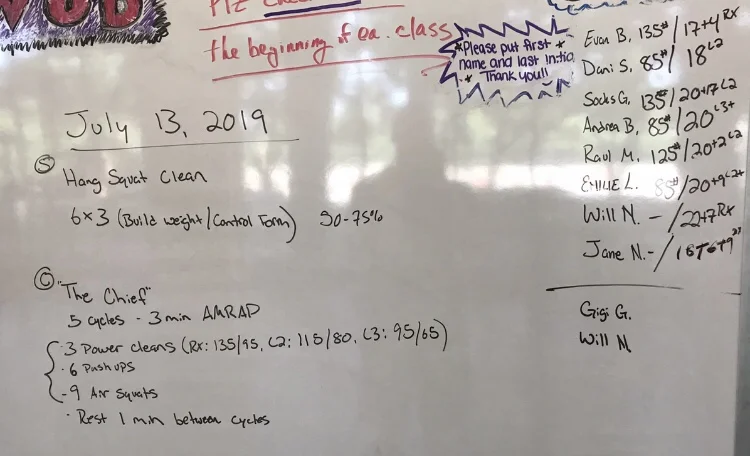 WOD
the beginning of ea. class
*Please put first *
name and last initial
* Thank you!! *
July 13, 2019
S
Hang Squat Clean
6x3 (Build weight/Control Form) 50-75%
C
"The Chief"
5 cycles - 3 min AMRAP
- 3 Power cleans (Rx: 135/95, L2: 115/80, L3: 95/65)
- 6 Push ups
- 9 Air Squats
· Rest 1 min between cycles
Evan B, 135#/17+4 RX
Dani S, 85#/18 L2
Socks G, 135#/20+17 L2
Andrea B, 85#/20 L3+
Raul M, 125#/20+2 L2
L. 85#/20+9
Will N. - /22+7 RX
Jane N. - /
Gigi G.
Will M